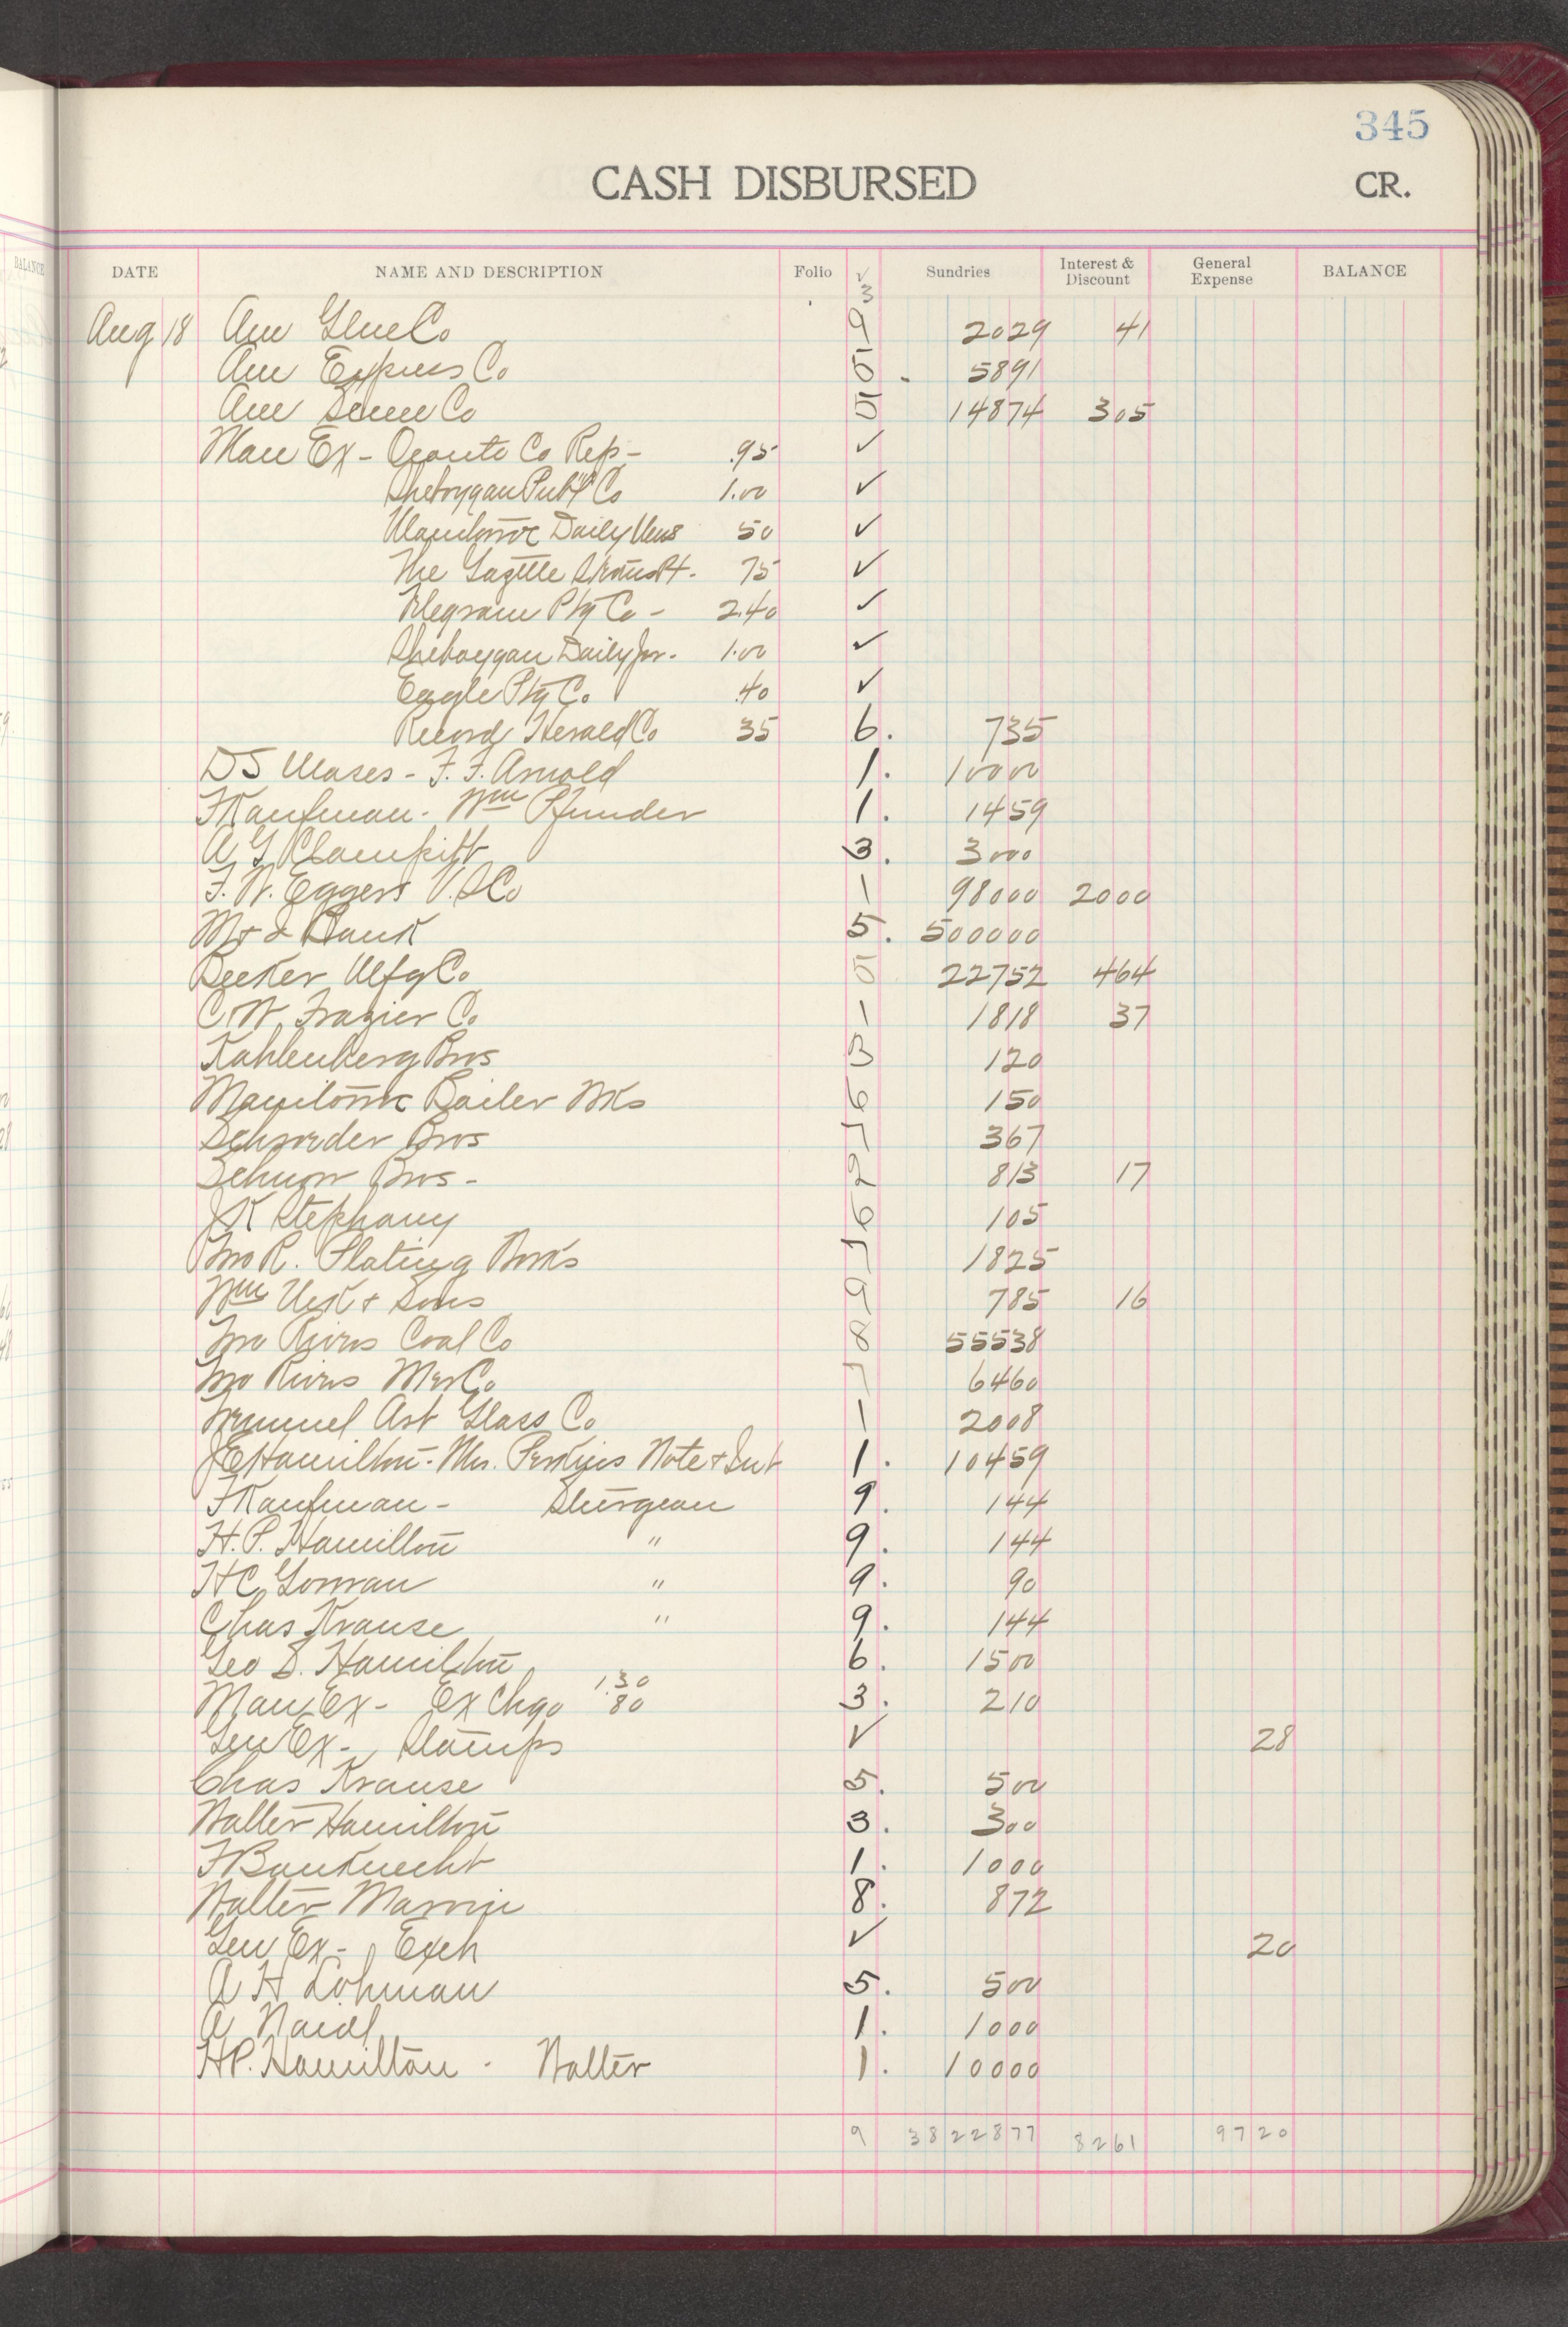 345
CASH DISBURSED CR.
BALANCE DATE NAME AND DESCRIPTION Folio √ Sundries Interest & Discount General Expense BALANCE
3
Aug 18 Am Glue Co 9 2029 41
Am Express Co 5 . 5891
Am Co 5 14874 305
Man Ex - Oconto Co Rep - .95 ✓
Sheboygan Pub Co 1.00 ✓
Daily News 50 ✓
The Gazette 75 ✓
Telegram Ptg Co - 2.40 ✓
Sheboygan Daily Jor. 1.00 ✓
Eagle Ptg Co. .40 ✓
Record Herald Co 35 6. 735
DS Moses - F. F. Arnold 1. 10000
F Kaufman - Wm Pfunder 1. 1459
A G Clampitt 3. 3000
F. W. Eggers V. S Co 1 98000 2000
Bank 5. 500000
Becker Mfg Co 5 22752 464
C W Frazier Co 1 1818 37
Kahlenberg Bros 3 120
Boiler Wks 6 150
Schroeder Bros 7 367
Schuor Bros - 2 813 17
J K Stephany 6 105
Two R. Plating Works 7 1825
Wm & Sons 9 785 16
Two Rivers Coal Co 8 55538
Two Rivers Mer Co 7 6460
Art Glass Co 1 2008
J E Hamilton - Mrs. Perkins Note & Int 1. 10459
F Kaufman - Sturgeon 9. 144
H. P. Hamilton " 9. 144
H C Gorman " 9. 90
Chas Krause " 9. 144
Geo S. Hamilton 6. 1500
1.30
Man Ex - Ex Chgo 80 3. 210
Gen Ex - Stamps ✓ 28
Chas Krause 5. 500
Walter Hamilton 3. 300
F Bauknecht 1. 1000
Walter 8. 872
Gen Ex - Exch ✓ 20
A H Lohman 5. 500
A 1. 1000
H P. Hamilton - Walter 1. 10000
9 3822877 8261 9720